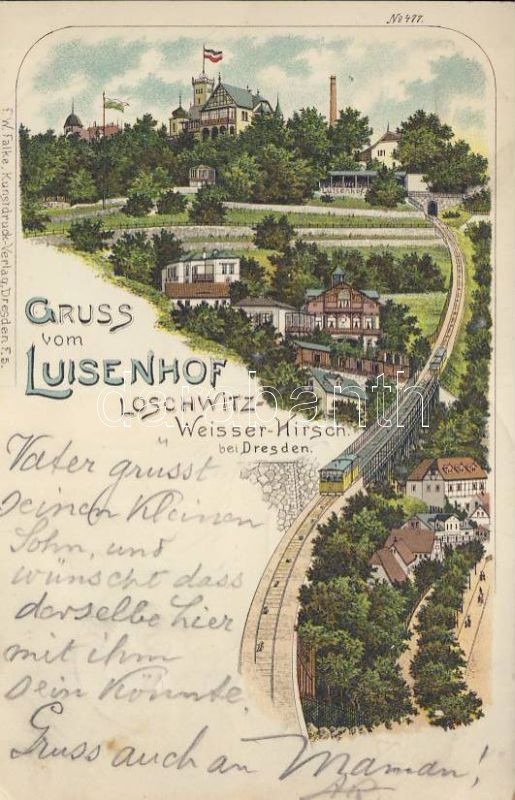 No 477.
LUISENHOF
F. W. Falke, Kunstdruck-Verlag, Dresden F. 5.
GRUSS
vom
LUISENHOF
LOSCHWITZ-
Weisser-Hirsch.
bei Dresden.
darabanth
Vater grüsst
seinen kleinen
Sohn, und
wünscht dass
derselbe hier
mit ihm
sein könnte.
Gruss auch an Maman!